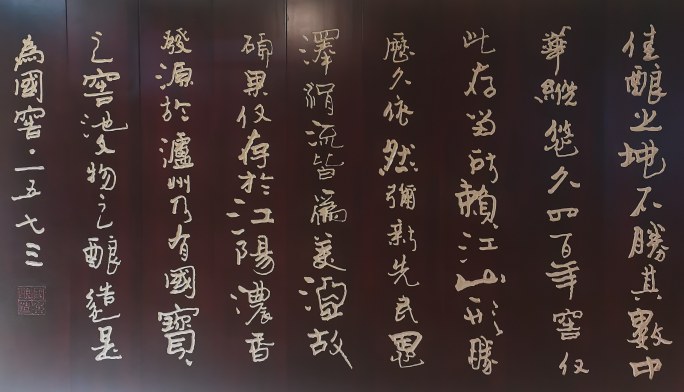 佳酿之地不勝其數中
華縱悠久四百年窖仅
此存當所賴江山形勝
歷久依然彌新先民恩
澤涓流皆為美酒故
碩果仅存於江陽濃香
發源於瀘州乃有國寶
之窖池物之酿造是
為國窖·一五七三